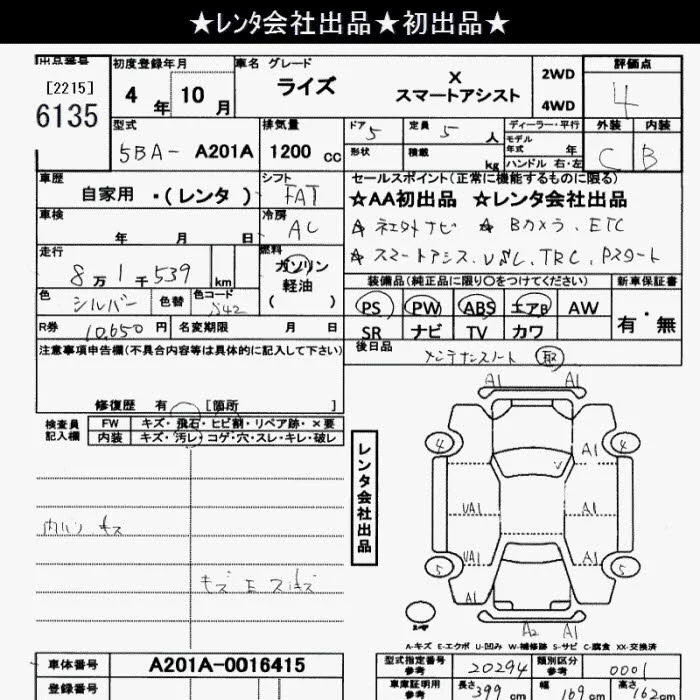 ★レンタ会社出品★初出品★
出品番号 初度登録年月 車名 グレード 評価点
[2215]
6135
4年 10月
ライズ X スマートアシスト
2WD
4WD
4
型式 排気量 ドア 5 定員 5人 ディーラー・平行 外装 内装
5BA- A201A 1200cc
形状 積載 kg
モデル年式 年
ハンドル 右・左
C B
車歴 シフト
自家用・(レンタ) FAT
車検 冷房
年 月 日 AC
走行 燃料
8万1千539 km
ガソリン
軽油
( )
色 シルバー 色替 色コード S42
R券 10,650円 名変期限 月 日
セールスポイント(正常に機能するものに限る)
☆AA初出品 ☆レンタ会社出品
☆ ナビ ☆ Bカメラ、ETC
☆ スマートアシスト、VSC、TRC、Pスタート
装備品(純正品に限り○をつけてください) 新車保証書
PS PW ABS エアB AW
SR ナビ TV カワ
有・無
後日品
メンテナンスノート 取
注意事項申告欄(不具合内容等は具体的に記入して下さい)
修復歴 有 [箇所 ]
検査員記入欄
FW キズ・飛石・ヒビ割・リペア跡・×要
内装 キズ・汚レ・コゲ・穴・スレ・キレ・破レ
内ハリ キズ
レンタ会社出品
A1 A1
4 4
A1
UA1 A1
UA1 A1
5 5
A1
A2 A1
A-キズ E-エクボ U-凹み W-補修跡 S-サビ C-腐食 XX-交換済
車体番号 A201A-0016415
登録番号
型式指定番号参考 20294 類別区分参考 0001
車庫証明用参考 長さ 399cm 幅 169cm 高さ 162cm